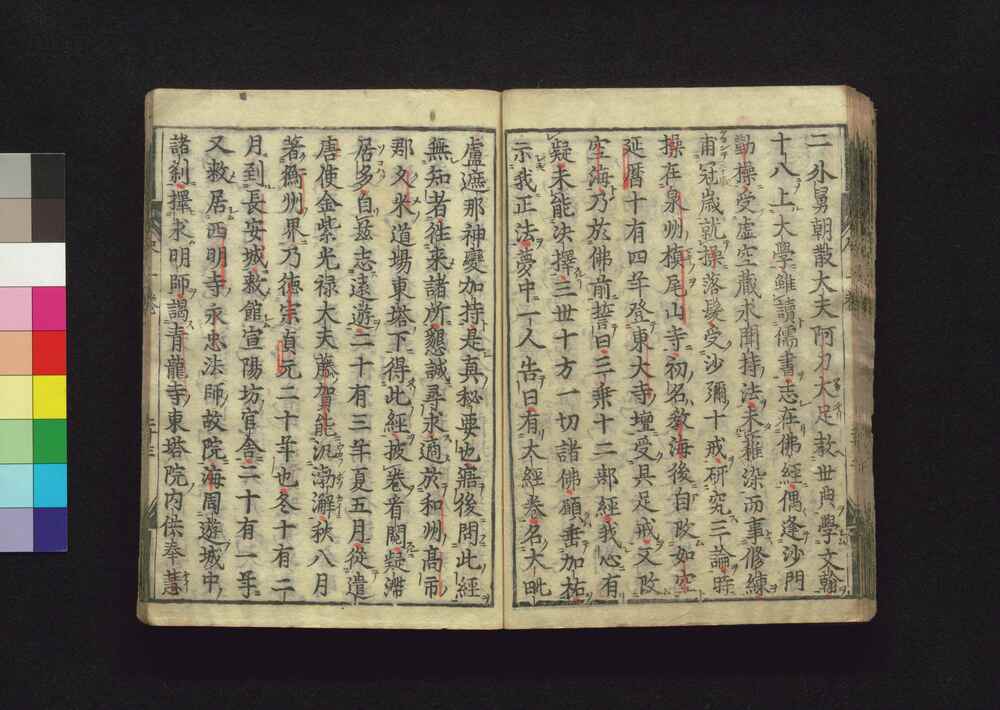 二外舅朝散大夫阿刀大足教世典學文翰
十八上大學雖讀儒書志在佛經偶逢沙門
勤操受虛空藏求聞持法未薙染而事修練
甫冠歲就操落髮受沙彌十戒研究三論時
操在泉州槙尾山寺初名教海後自改如空
延曆十有四年登東大寺壇受具足戒又改
空海乃於佛前誓曰三乘十二部經我心有
疑未能決擇三世十方一切諸佛願垂加祐
示我正法夢中一人告曰有大經卷名大毗
盧遮那神變加持是真秘要也寤後問此經
無知者徃來諸所懇誠尋求適於和州高市
郡久米道場東塔下得此經披卷看閱疑滯
居多自茲志遠遊二十有三年夏五月從遣
唐使金紫光祿大夫藤賀能汎渤澥秋八月
著衡州界乃德宗貞元二十年也冬十有二
月到長安城敕館宣陽坊官舍二十有一年
又敕居西明寺永忠法師故院海周遊城中
諸剎擇求明師謁青龍寺東塔院內供奉慧